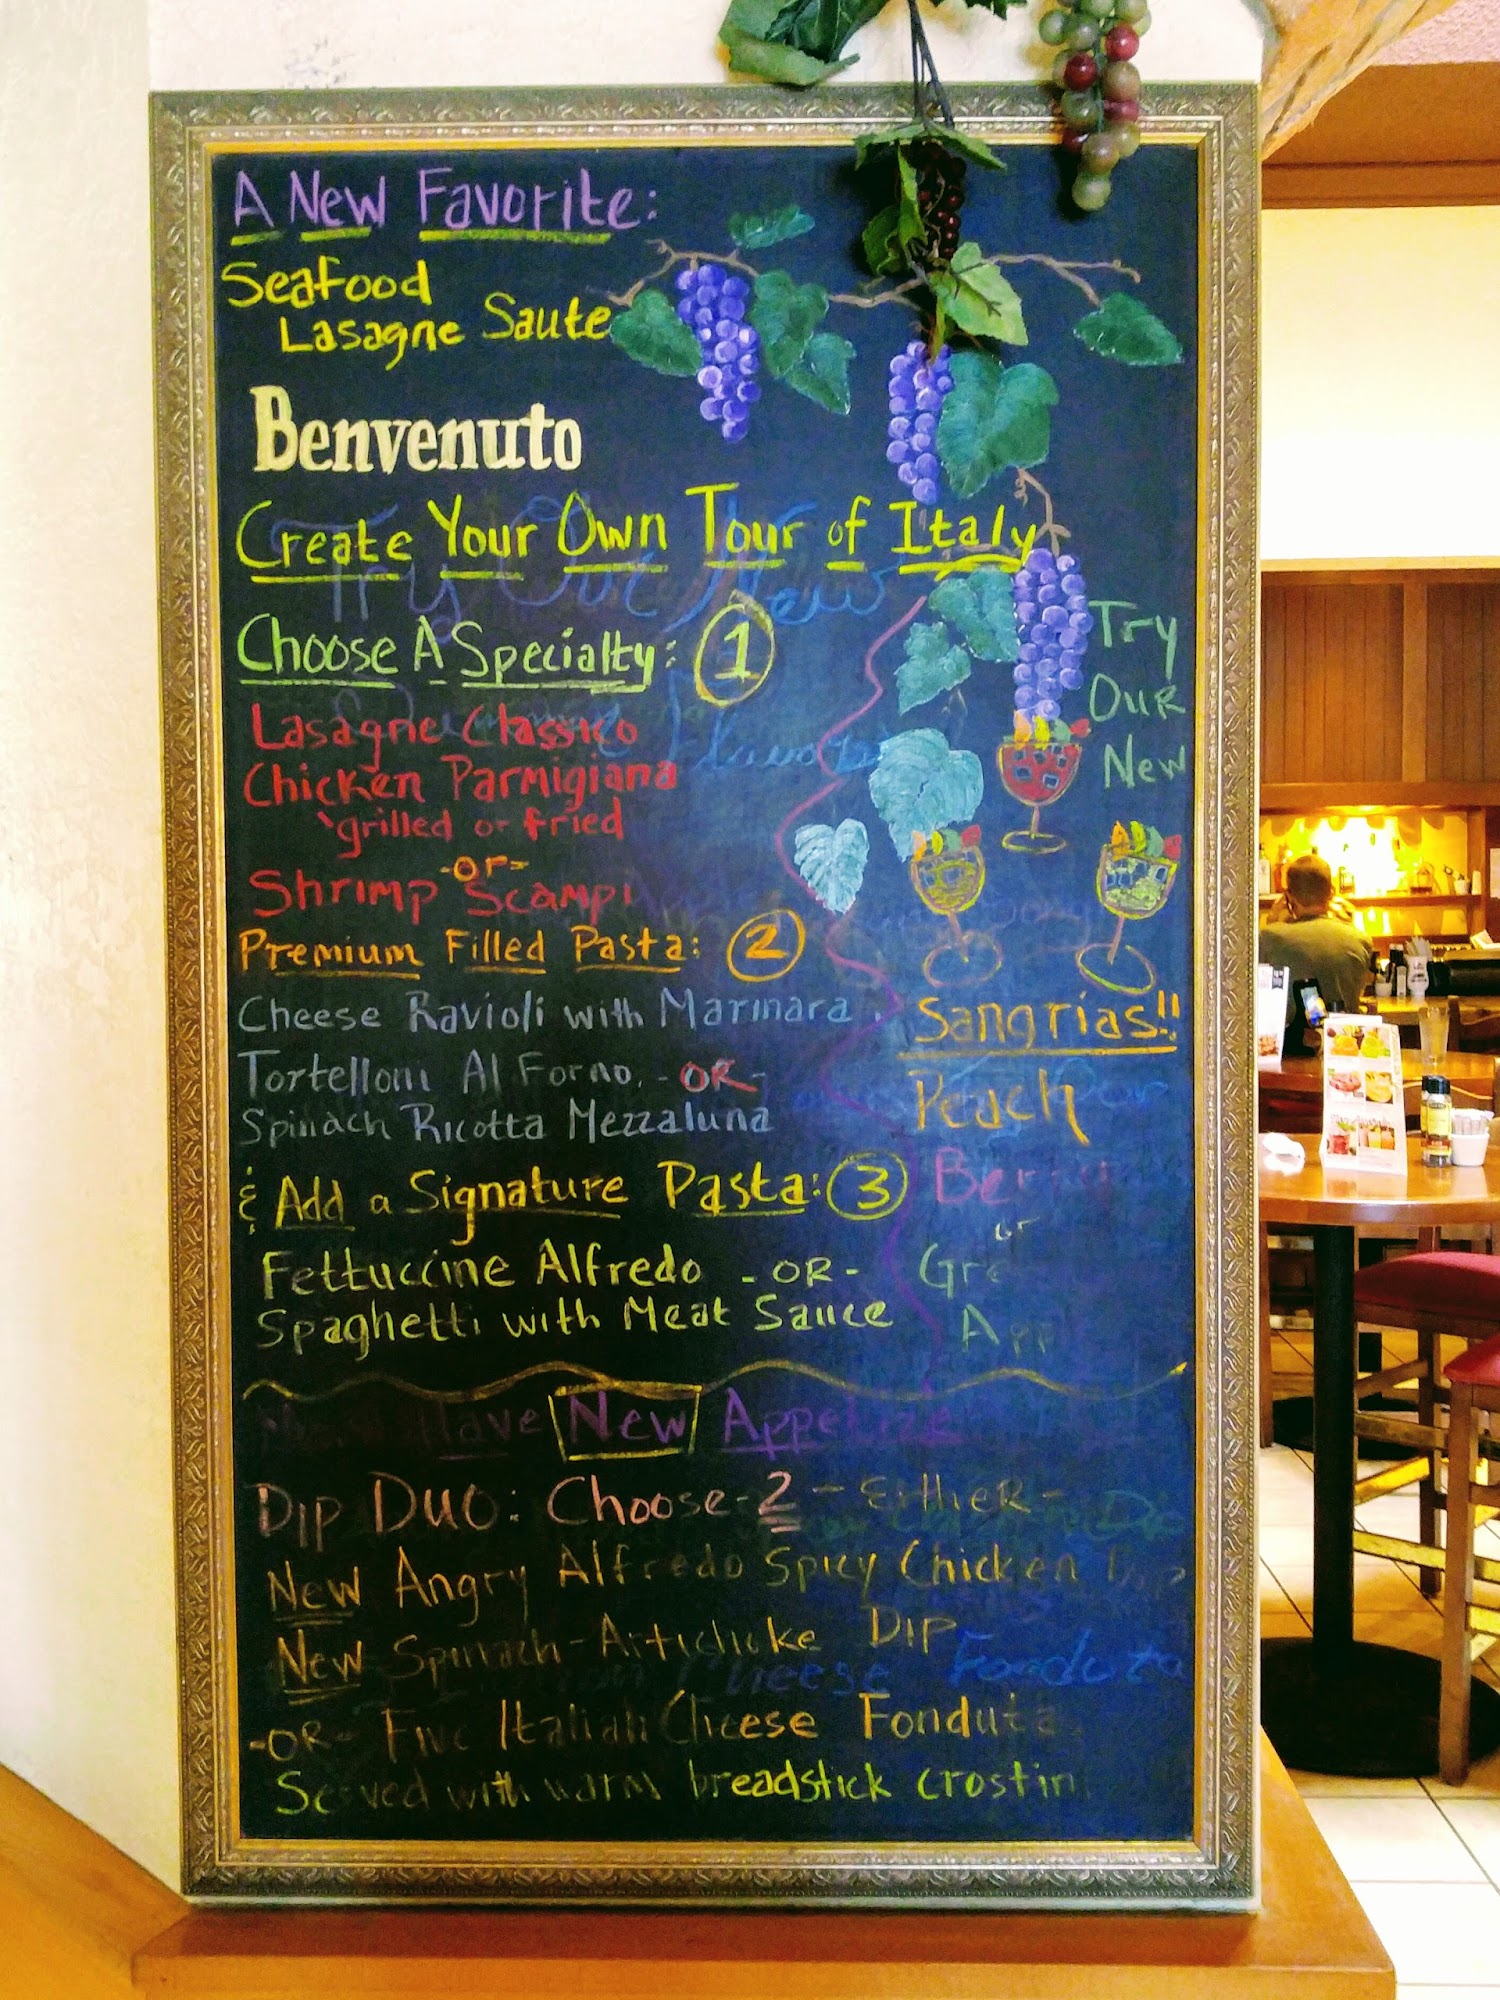 A New Favorite:
Seafood
Lasagne Saute
Benvenuto
Create Your Own Tour of Italy
Try Our New
Choose A Specialty: 1
Lasagne Classico
Chicken Parmigiana
grilled or fried
-or-
Shrimp Scampi
Premium Filled Pasta: 2
Cheese Ravioli with Marinara
Tortelloni Al Forno, -OR-
Spinach Ricotta Mezzaluna
& Add a Signature Pasta: 3
Fettuccine Alfredo -OR-
Spaghetti with Meat Sauce
Try
Our
New
Sangrias!!
Peach
Berry
or
Gre
App
Have New Appetize
Dip Duo: Choose-2 - Either-
New Angry Alfredo Spicy Chicken Dip
New Spinach-Artichoke Dip
Cheese Fonduta
-OR- Five Italian Cheese Fonduta
Served with warm breadstick crostin